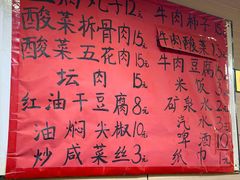 肉丸子12元
酸菜拆骨肉15元
酸菜五花肉15元
坛肉15元
红油干豆腐8元
油焖尖椒10元
炒咸菜丝3元
牛肉柿子12元
牛肉酸菜
牛肉豆腐
米饭
矿泉水
汽水
啤酒
纸巾